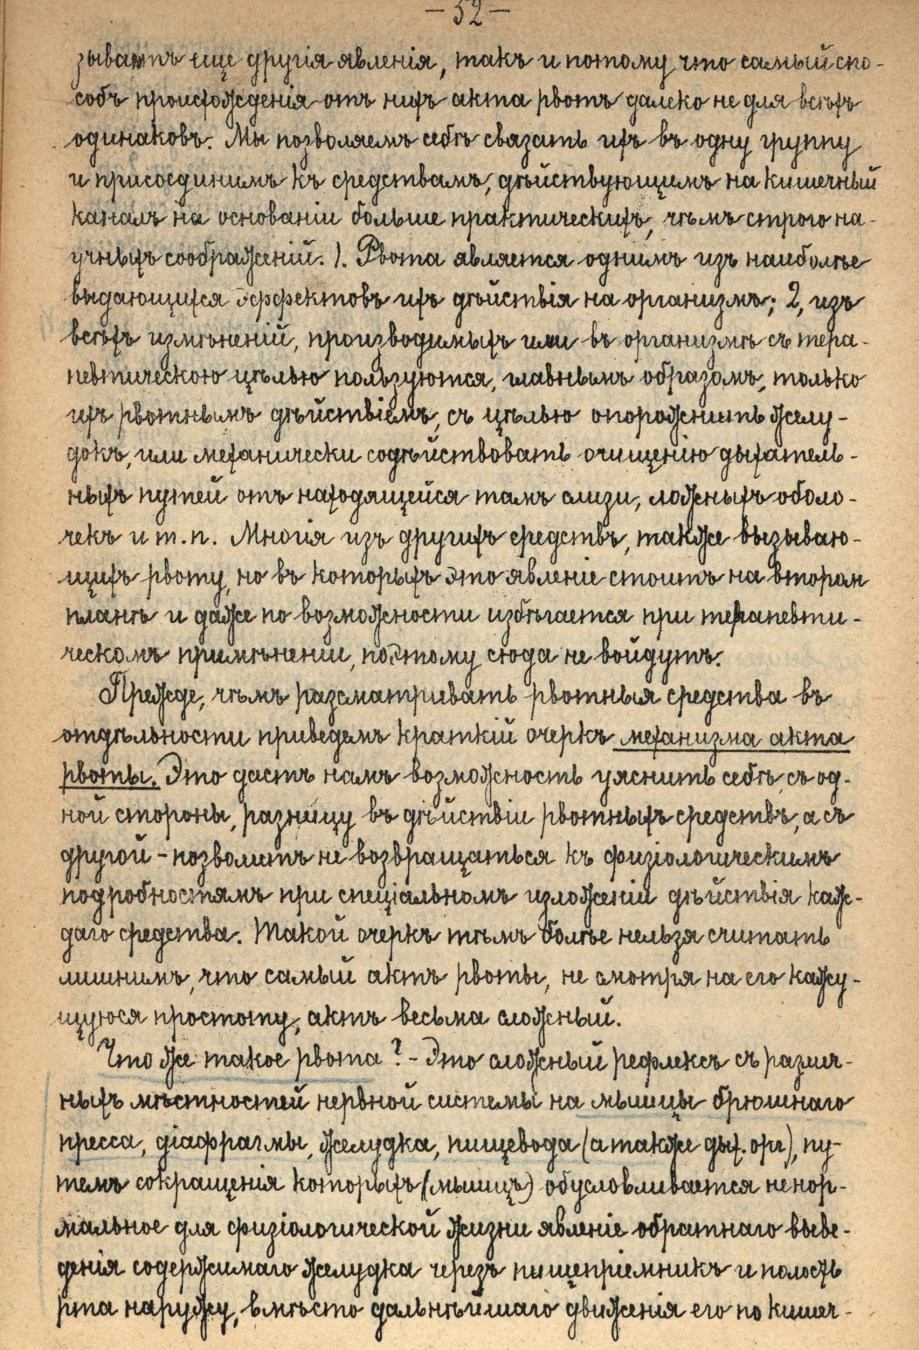 — 52 —
зываютъ еще другія явленія, такъ и потому, что самый спо-
собъ происхожденія отъ нихъ акта рвотъ далеко не для всѣхъ
одинаковъ. Мы позволяемъ себѣ связать ихъ въ одну группу
и присоединимъ къ средствамъ, дѣйствующимъ на кишечный
каналъ на основаніи больше практическихъ, чѣмъ строго на-
учныхъ соображеній. 1. Рвота является однимъ изъ наиболѣе
выдающихся эффектовъ ихъ дѣйствія на организмъ; 2, изъ
всѣхъ измѣненій, производимыхъ ими въ организмѣ съ тера-
певтическою цѣлью пользуются, главнымъ образомъ, только
ихъ рвотнымъ дѣйствіемъ, съ цѣлью опорожнить желу-
докъ, или механически содѣйствовать очищенію дыхатель-
ныхъ путей отъ находящейся тамъ слизи, ложныхъ оболо-
чекъ и т. п. Многія изъ другихъ средствъ, также вызываю-
щихъ рвоту, но въ которыхъ это явленіе стоитъ на второмъ
планѣ и даже по возможности избѣгается при терапевти-
ческомъ примѣненіи, поэтому сюда не войдутъ.
Прежде, чѣмъ разсматривать рвотныя средства въ
отдѣльности приведемъ краткій очеркъ механизма акта
рвоты. Это дастъ намъ возможность уяснить себѣ, съ од-
ной стороны, разницу въ дѣйствіи рвотныхъ средствъ, а съ
другой – позволитъ не возвращаться къ физіологическимъ
подробностямъ при спеціальномъ изложеніи дѣйствія каж-
даго средства. Такой очеркъ тѣмъ болѣе нельзя считать
лишнимъ, что самый актъ рвоты, не смотря на его кажу-
щуюся простоту, актъ весьма сложный.
Что же такое рвота? – Это сложный рефлексъ съ различ-
ныхъ мѣстностей нервной системы на мышцы брюшнаго
пресса, діафрагмы, желудка, пищевода (а также дых. орг.), пу-
темъ сокращенія которыхъ (мышцъ) обусловливается ненор-
мальное для физіологической жизни явленіе обратнаго выве-
денія содержимаго желудка черезъ пищепріемникъ и полость
рта наружу, вмѣсто дальнѣйшаго движенія его по кишеч-